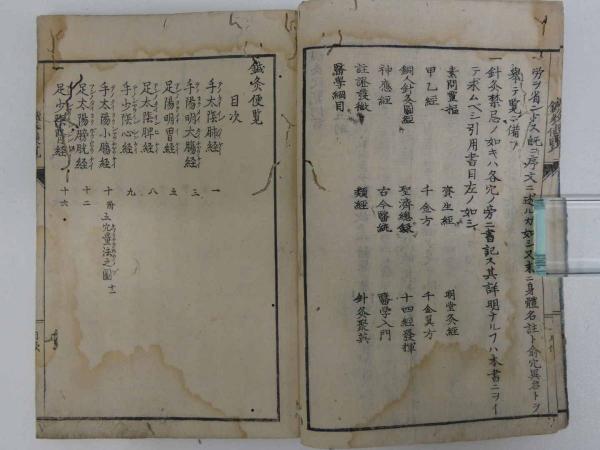 労ヲ省ントス既ニ序文ニ述ルカ如シ又末ニ身體名註ト俞穴異名トヲ
舉ケテ覧ニ備フ
一針灸禁忌ノ如キハ各穴ノ旁ニ書記ス其詳明ナルフハ本書ニヲイ
テ求ムベシ引用書目左ノ如シ
素問靈樞 資生經 明堂灸經
甲乙經 千金方 千金翼方
銅人針灸圖經 聖濟總錄 十四經發揮
神應經 古今醫統 醫學入門
註證發微 類經 針灸聚英
醫學綱目
鍼灸便覧
目次
手太陰肺經 一
手陽明大腸經 三
足陽明胃經 五
足太陰脾經 八
手少陰心經 九
手太陽小腸經 十
足太陽膀胱經 十二
足少陰腎經 十六